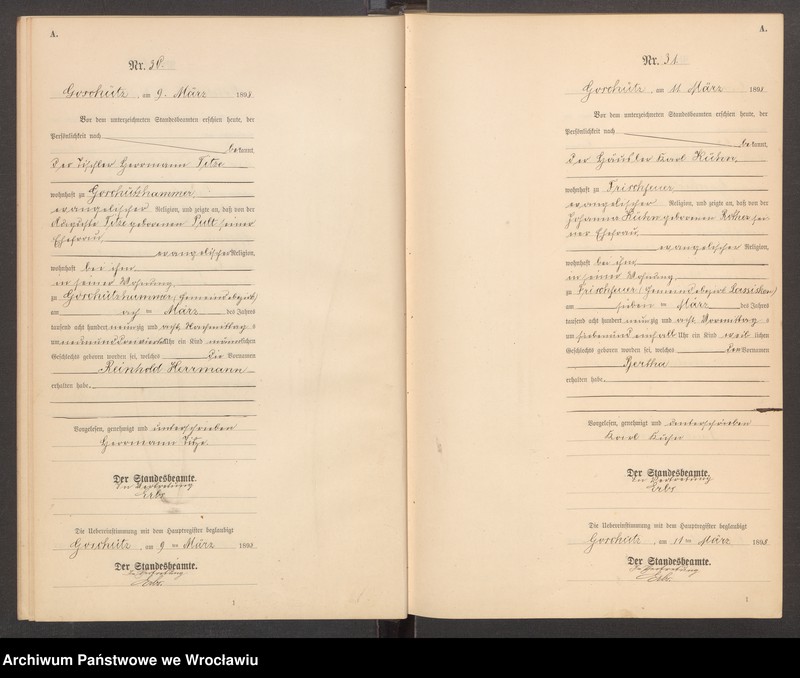 A.
Nr. 30.
Goschütz, am 9. März 1898
Vor dem unterzeichneten Standesbeamten erschien heute, der
Persönlichkeit nach
bekannt,
der Tischler Herrmann Titze
wohnhaft zu Goschützhammer
evangelischer Religion, und zeigte an, daß von der
Auguste Titze geborenen seiner
Ehefrau
evangelischer Religion,
wohnhaft bei ihm
in seiner Wohnung
zu Goschützhammer (Gemeindebezirk)
am März des Jahres
tausend acht hundert neunzig und acht Nachmittags
um Uhr ein Kind männlichen
Geschlechts geboren worden sei, welches die Vornamen
Reinhold Herrmann
erhalten habe.
Vorgelesen, genehmigt und unterschrieben
Herrmann Titze
Der Standesbeamte.
In Vertretung
Erbs
Die Uebereinstimmung mit dem Hauptregister beglaubigt
Goschütz, am 9 ten März 1898
Der Standesbeamte.
In Vertretung
Erbs.
1
A.
Nr. 31
Goschütz, am 11 März 1898
Vor dem unterzeichneten Standesbeamten erschien heute, der
Persönlichkeit nach
bekannt,
der Häusler Karl Kühn
wohnhaft zu Frischfeuer
evangelischer Religion, und zeigte an, daß von der
Johanna Kühn geborenen Rother sei-
ner Ehefrau
evangelischer Religion,
wohnhaft bei ihm
in seiner Wohnung
zu Frischfeuer (Gemeindebezirk Lassisken)
am sieben ten März des Jahres
tausend acht hundert neunzig und acht Vormittags
um siebenundeinhalb Uhr ein Kind weiblichen
Geschlechts geboren worden sei, welches den Vornamen
Bertha
erhalten habe.
Vorgelesen, genehmigt und unterschrieben
Karl Kühn
Der Standesbeamte.
In Vertretung
Erbs
Die Uebereinstimmung mit dem Hauptregister beglaubigt
Goschütz, am 11 ten März 1898
Der Standesbeamte.
In Vertretung
Erbs.
1
Archiwum Państwowe we Wrocławiu